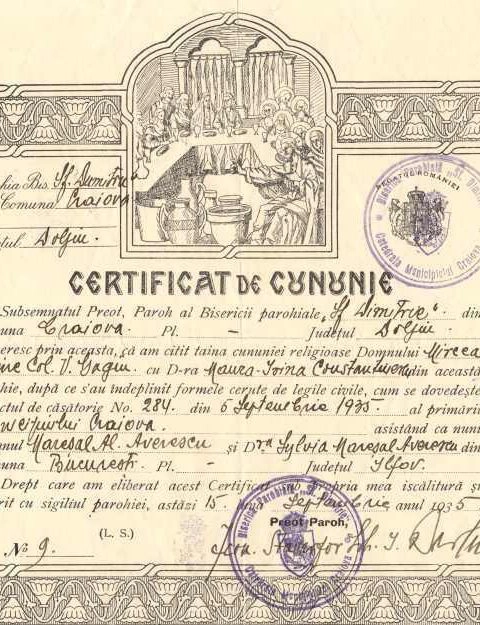 hia Bis. Sf. Dumitru
Comuna Craiova
țul Doljiu.
PATRIARHIA ROMÂNIEI
CERTIFICAT DE CUNUNIE
Subsemnatul Preot, Paroh al Bisericii parohiale „Sf Dimitrie" din
una Craiova. Pl. - Județul Doljiu
eresc prin aceasta, că am citit taina cununiei religioase Domnului Mircea
Col. V. cu D-ra Maura-Irina Constantinescu din această
hie, după ce s'au îndeplinit formele cerute de legile civile, cum se dovedește
ctul de căsătorie No. 284. din 5 Septembrie 1935. al primărie
Craiova. asistând ca nun
nul Mareșal Al. Averescu și D-ra Sylvia Mareșal Averescu din
una București. Pl. - Județul Ilfov.
Drept care am eliberat acest Certificat propria mea iscălitură și
rit cu sigiliul parohiei, astăzi 15 Septembrie anul 1935
Preot Paroh,
(L. S.)
No 9.
Catedrala Municipiului Craiova